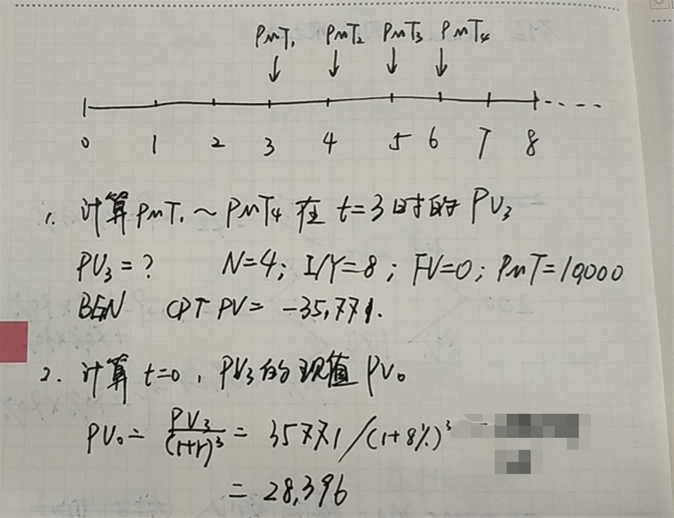 PMT₁ PMT₂ PMT₃ PMT₄
0 1 2 3 4 5 6 7 8
1. 计算PMT₁～PMT₄在t=3时的PV₃
PV₃=? N=4; I/Y=8; FV=0; PMT=10000
BGN CPT PV= -35,771.
2. 计算t=0，PV₃的现值PV₀
PV₀= PV₃/(1+r)³ = 35771/(1+8%)³
= 28,396